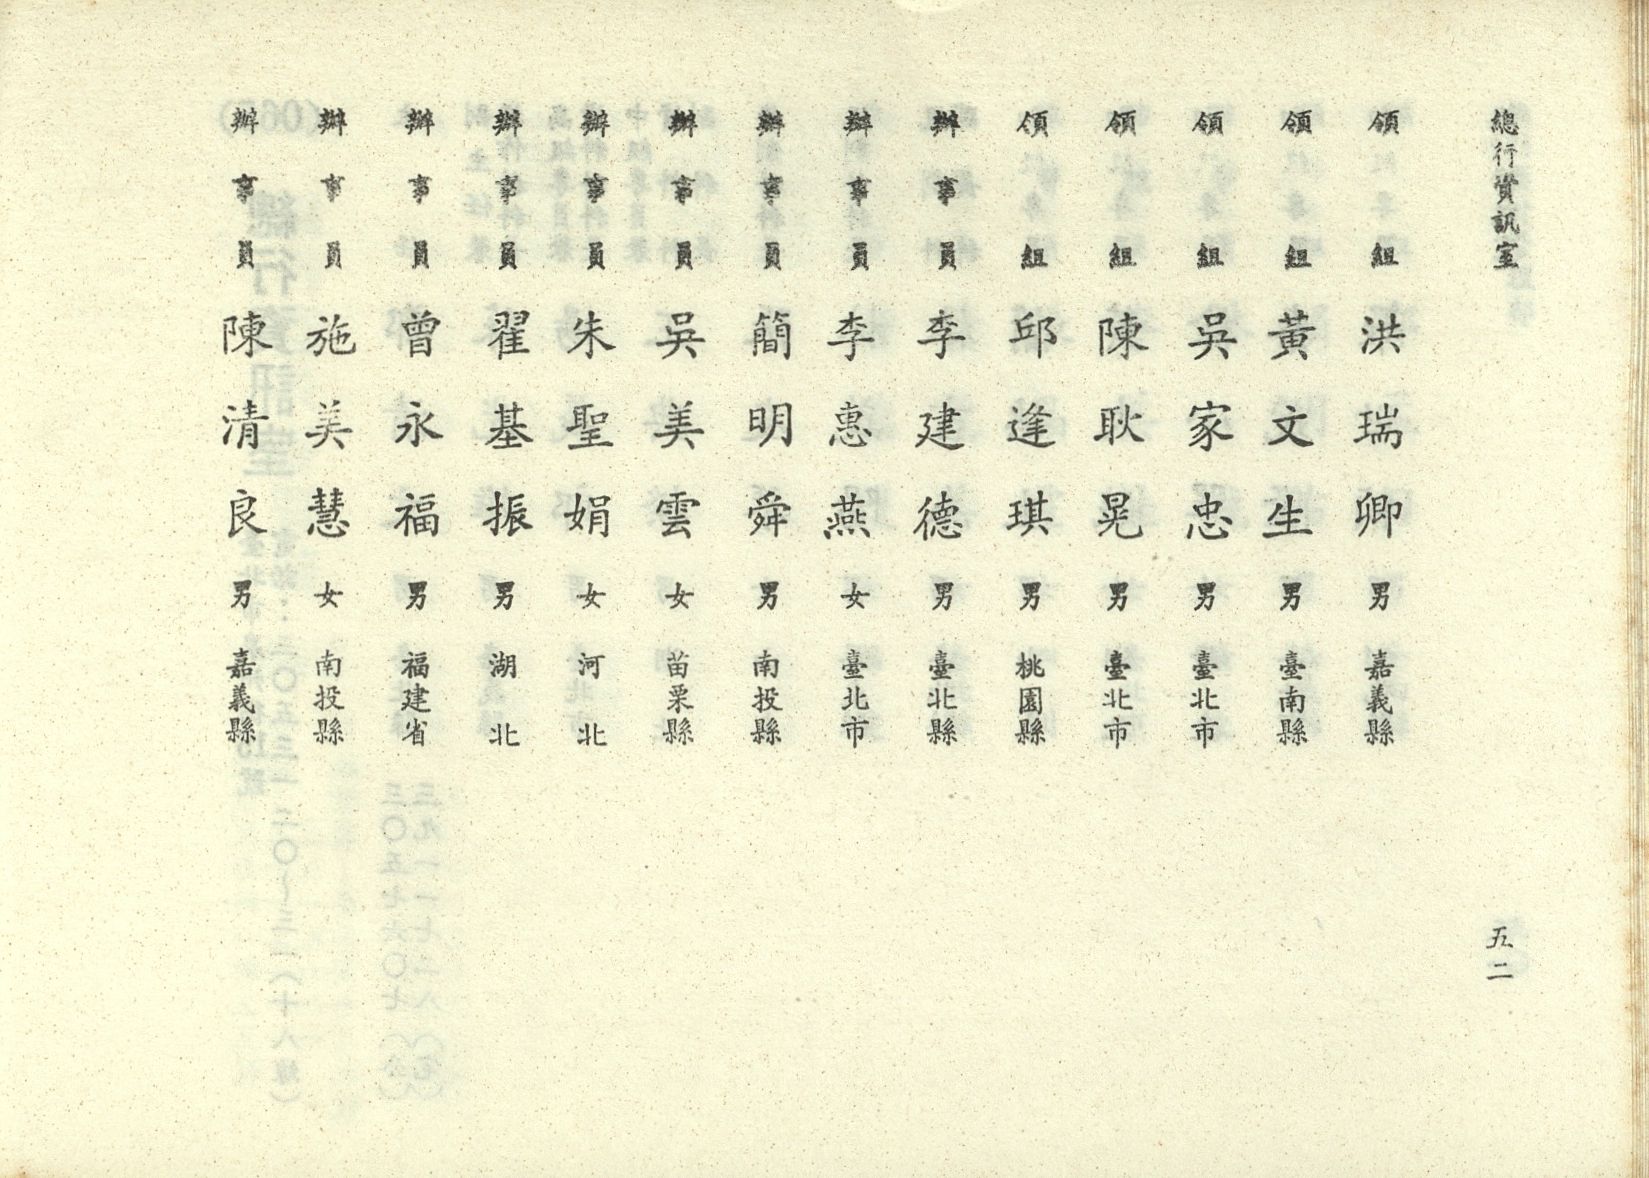 總行資訊室
五二
領組 洪瑞卿 男 嘉義縣
領組 黃文生 男 臺南縣
領組 吳家忠 男 臺北市
領組 陳耿晃 男 臺北市
領組 邱逢琪 男 桃園縣
辦事員 李建德 男 臺北縣
辦事員 李惠燕 女 臺北市
辦事員 簡明舜 男 南投縣
辦事員 吳美雲 女 苗栗縣
辦事員 朱聖娟 女 河北
辦事員 翟基振 男 湖北
辦事員 曾永福 男 福建省
辦事員 施美慧 女 南投縣
辦事員 陳清良 男 嘉義縣